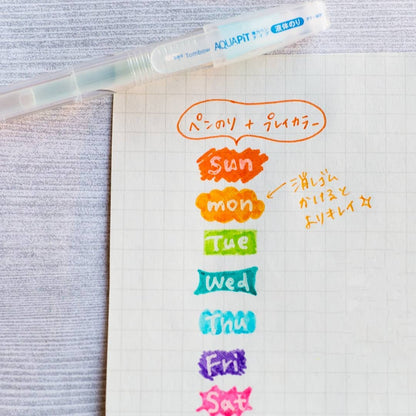 Tombow AQUAPiT 液体のり
ペンのり + プレイカラー
Sun
mon
消しゴム
かけると
よりキレイ☆
Tue
Wed
Thu
Fri
Sat